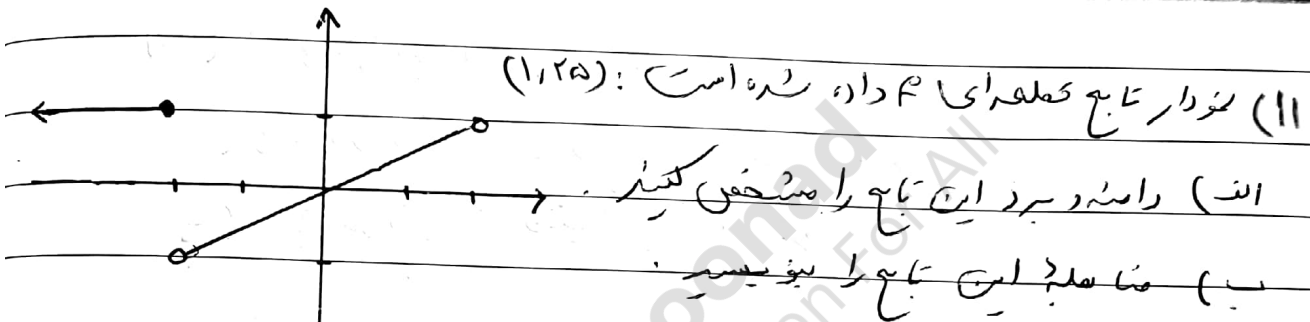 ۱۱) نمودار تابع قطعه‌ای f داده شده است : (۱,۲۵)
الف) دامنه و برد این تابع را مشخص کنید .
ب) ضابطهٔ این تابع را بنویسید .
onad
on For All